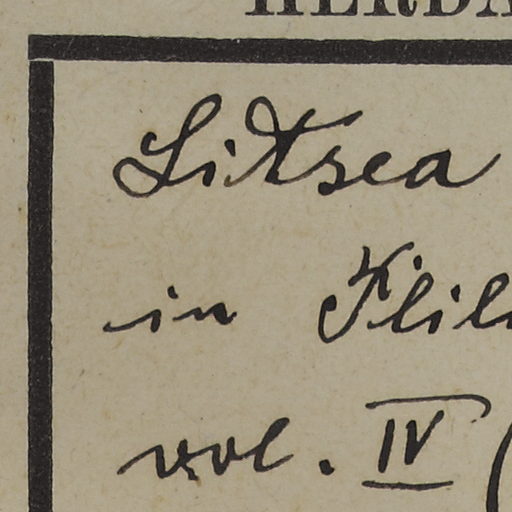 HERBA
Litsea
in Flil
vol. IV (